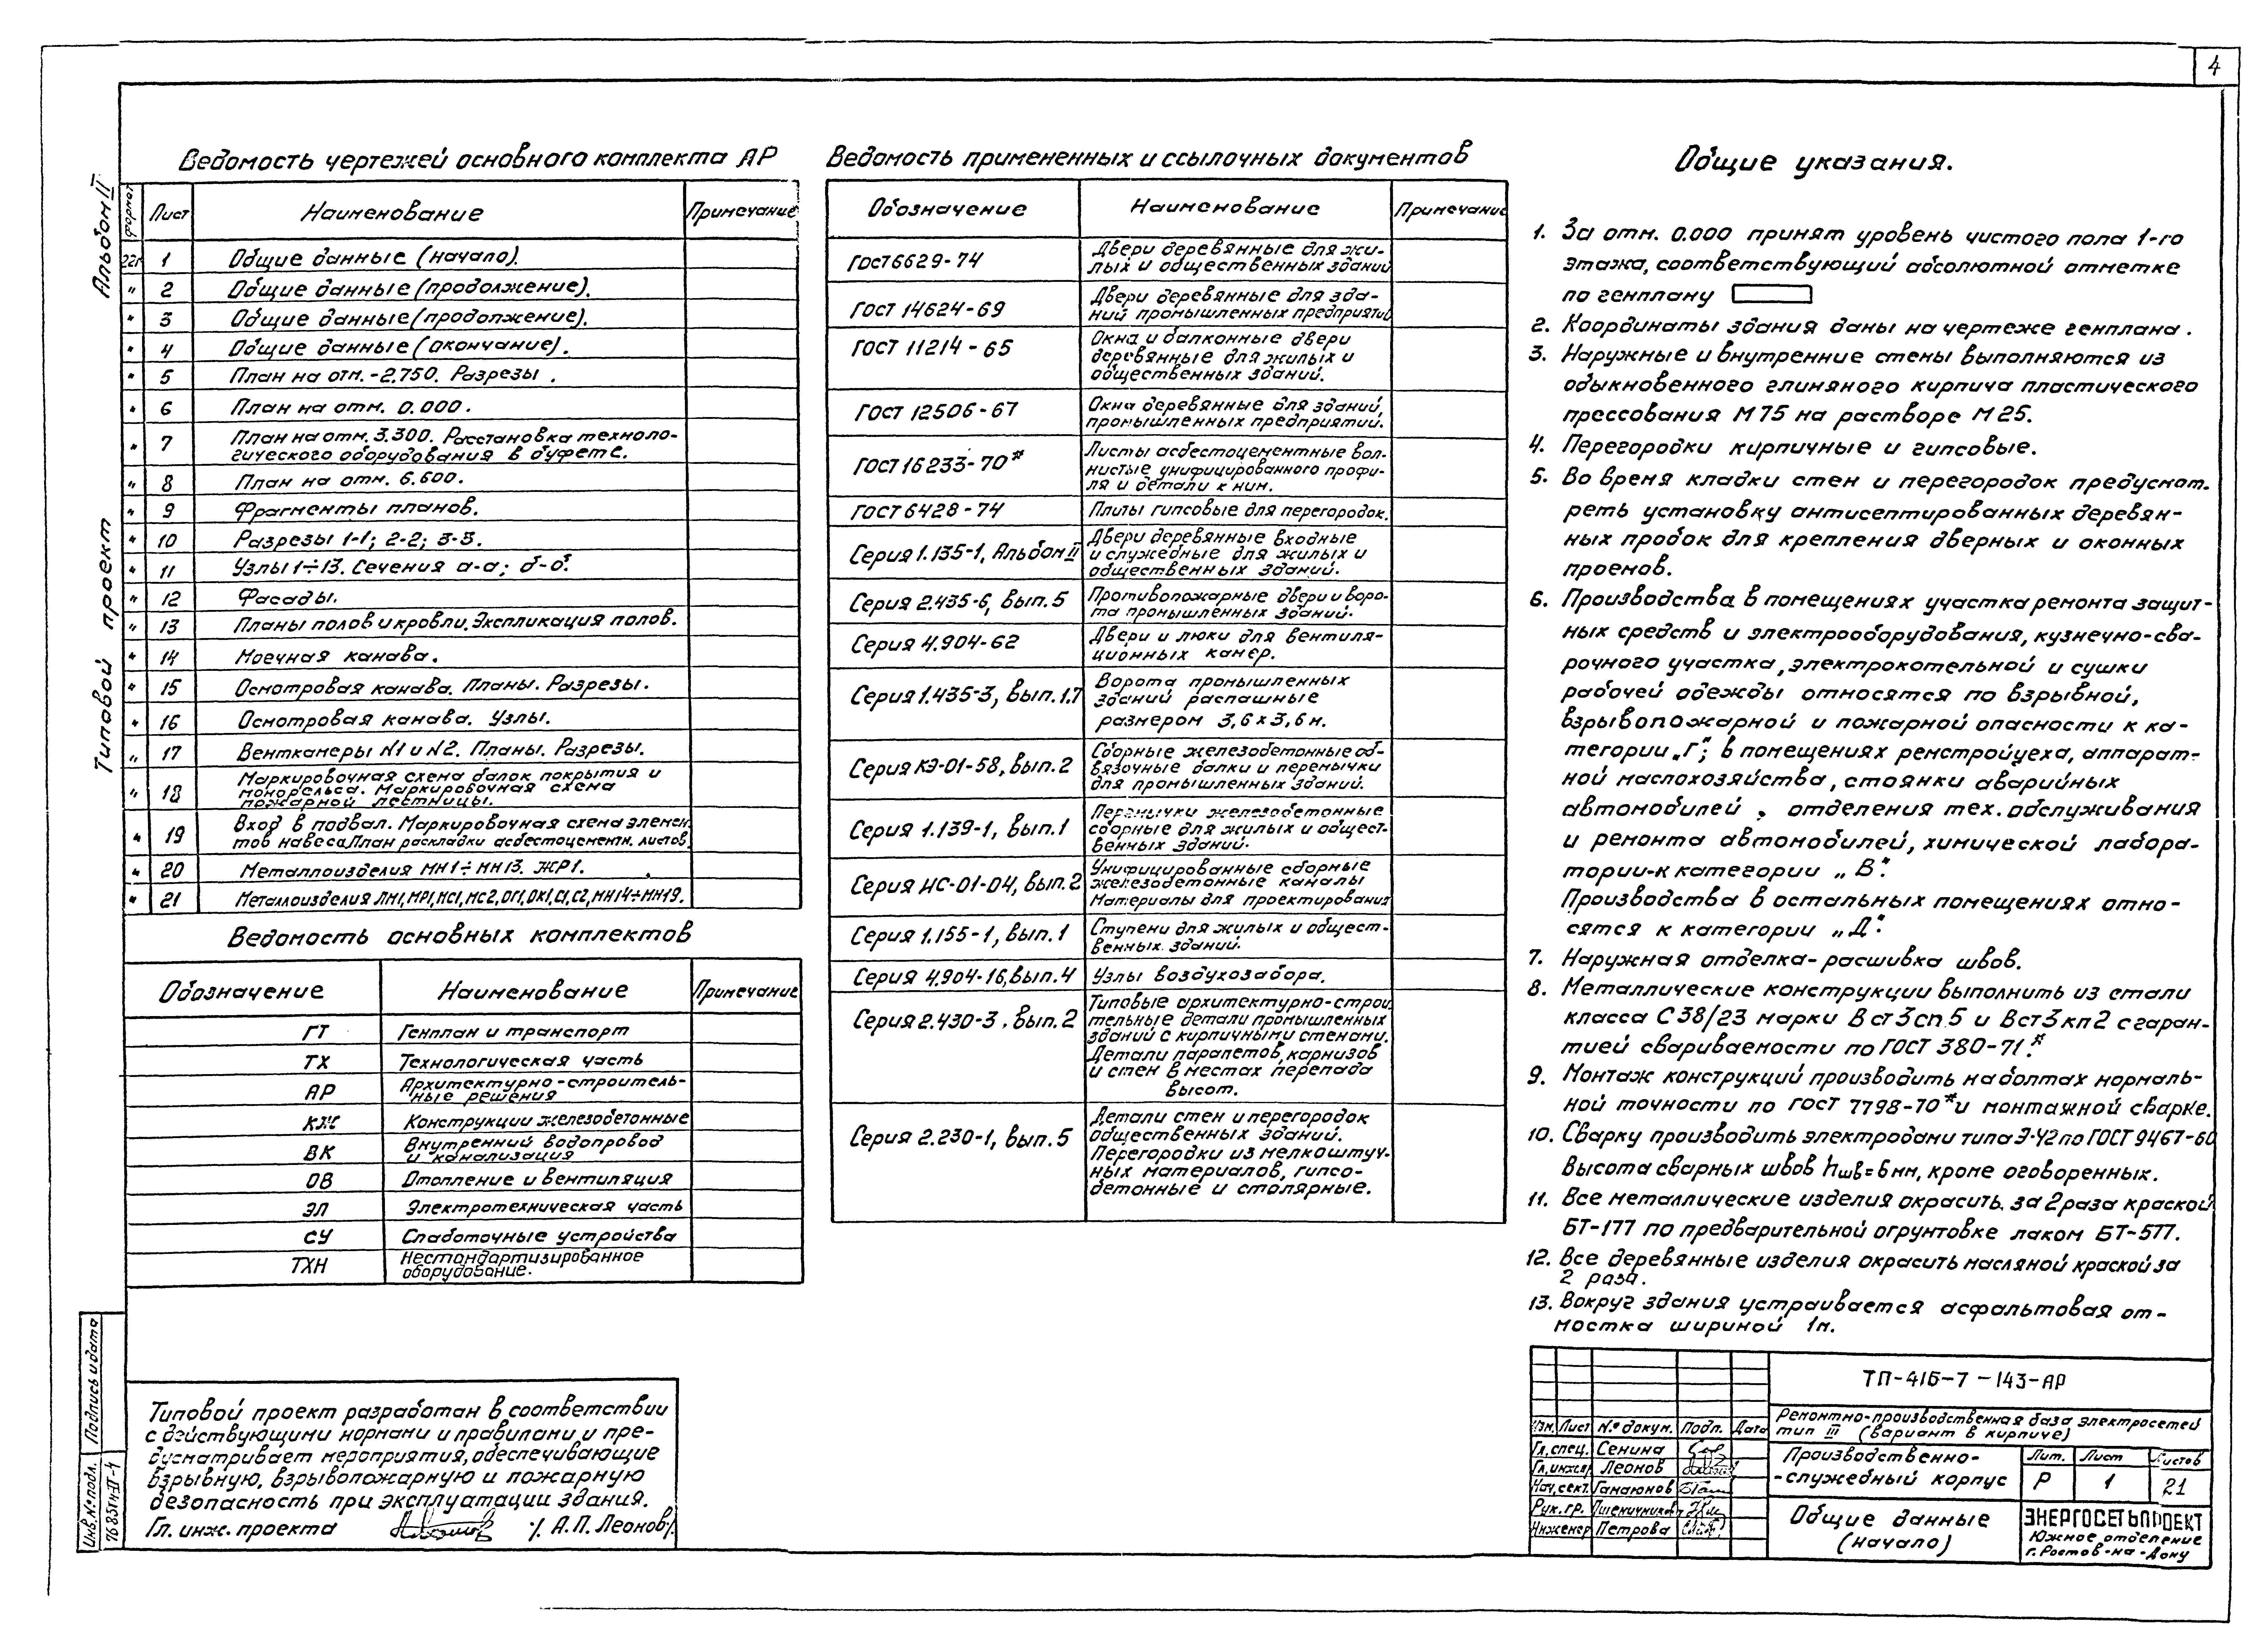 4
Альбом II
Типовой проект
Ведомость чертежей основного комплекта АР
Формат Лист Наименование Примечание
22г 1 Общие данные (начало).
" 2 Общие данные (продолжение).
" 3 Общие данные (продолжение).
" 4 Общие данные (окончание).
" 5 План на отм. -2.750. Разрезы.
" 6 План на отм. 0.000.
" 7 План на отм. 3.300. Расстановка техноло-
гического оборудования в буфете.
" 8 План на отм. 6.600.
" 9 Фрагменты планов.
" 10 Разрезы 1-1; 2-2; 3-3.
" 11 Узлы 1÷13. Сечения а-а; б-б.
" 12 Фасады.
" 13 Планы полов и кровли. Экспликация полов.
" 14 Моечная канава.
" 15 Осмотровая канава. Планы. Разрезы.
" 16 Осмотровая канава. Узлы.
" 17 Венткамеры N1 и N2. Планы. Разрезы.
" 18 Маркировочная схема балок покрытия и
монорельса. Маркировочная схема
пожарной лестницы.
" 19 Вход в подвал. Маркировочная схема элемен-
тов навеса. План раскладки асбестоцементн. листов.
" 20 Металлоизделия МН1÷МН13. ЖР1.
" 21 Металлоизделия ЛМ1, МР1, МС1, МС2, ОГ1, ОК1, С1, С2, МН14÷МН19.
Ведомость основных комплектов
Обозначение Наименование Примечание
ГТ Генплан и транспорт
ТХ Технологическая часть
АР Архитектурно-строитель-
ные решения
КЖ Конструкции железобетонные
ВК Внутренний водопровод
и канализация
ОВ Отопление и вентиляция
ЭЛ Электротехническая часть
СУ Слаботочные устройства
ТХН Нестандартизированное
оборудование.
Типовой проект разработан в соответствии
с действующими нормами и правилами и пре-
дусматривает мероприятия, обеспечивающие
взрывную, взрывопожарную и пожарную
безопасность при эксплуатации здания.
Гл. инж. проекта /А.П. Леонов/
Инв. № подл. Подпись и дата
7685тм-II-4
Ведомость примененных и ссылочных документов
Обозначение Наименование Примечание
ГОСТ 6629-74 Двери деревянные для жи-
лых и общественных зданий
ГОСТ 14624-69 Двери деревянные для зда-
ний промышленных предприятий
ГОСТ 11214-65 Окна и балконные двери
деревянные для жилых и
общественных зданий.
ГОСТ 12506-67 Окна деревянные для зданий,
промышленных предприятий.
ГОСТ 16233-70* Листы асбестоцементные вол-
нистые унифицированного профи-
ля и детали к ним.
ГОСТ 6428-74 Плиты гипсовые для перегородок.
Серия 1.135-1, Альбом II Двери деревянные входные
и служебные для жилых и
общественных зданий.
Серия 2.435-6, вып. 5 Противопожарные двери и воро-
та промышленных зданий.
Серия 4.904-62 Двери и люки для вентиля-
ционных камер.
Серия 1.435-3, вып. 1.7 Ворота промышленных
зданий распашные
размером 3,6х3,6м.
Серия КЭ-01-58, вып. 2 Сборные железобетонные об-
вязочные балки и перемычки
для промышленных зданий.
Серия 1.139-1, вып. 1 Перемычки железобетонные
сборные для жилых и общест-
венных зданий.
Серия ИС-01-04, вып. 2 Унифицированные сборные
железобетонные каналы
Материалы для проектирования
Серия 1.155-1, вып. 1 Ступени для жилых и общест-
венных зданий.
Серия 4.904-16, вып. 4 Узлы воздухозабора.
Серия 2.430-3, вып. 2 Типовые архитектурно-строи-
тельные детали промышленных
зданий с кирпичными стенами.
Детали парапетов, карнизов
и стен в местах перепада
высот.
Серия 2.230-1, вып. 5 Детали стен и перегородок
общественных зданий.
Перегородки из мелкоштуч-
ных материалов, гипсо-
бетонные и столярные.
Общие указания.
1. За отм. 0.000 принят уровень чистого пола 1-го
этажа, соответствующий абсолютной отметке
по генплану
2. Координаты здания даны на чертеже генплана.
3. Наружные и внутренние стены выполняются из
обыкновенного глиняного кирпича пластического
прессования М75 на растворе М25.
4. Перегородки кирпичные и гипсовые.
5. Во время кладки стен и перегородок предусмот-
реть установку антисептированных деревян-
ных пробок для крепления дверных и оконных
проемов.
6. Производства в помещениях участка ремонта защит-
ных средств и электрооборудования, кузнечно-сва-
рочного участка, электрокотельной и сушки
рабочей одежды относятся по взрывной,
взрывопожарной и пожарной опасности к ка-
тегории „Г"; в помещениях ремстройцеха, аппарат-
ной маслохозяйства, стоянки аварийных
автомобилей, отделения тех. обслуживания
и ремонта автомобилей, химической лабора-
тории-к категории „В".
Производства в остальных помещениях отно-
сятся к категории „Д".
7. Наружная отделка-расшивка швов.
8. Металлические конструкции выполнить из стали
класса С38/23 марки Вст3сп5 и Вст3кп2 с гаран-
тией свариваемости по ГОСТ 380-71*.
9. Монтаж конструкций производить на болтах нормаль-
ной точности по ГОСТ 7798-70* и монтажной сварке.
10. Сварку производить электродами типа Э-42 по ГОСТ 9467-60
Высота сварных швов hшв=6мм, кроме оговоренных.
11. Все металлические изделия окрасить за 2 раза краской
БТ-177 по предварительной огрунтовке лаком БТ-577.
12. Все деревянные изделия окрасить масляной краской за
2 раза.
13. Вокруг здания устраивается асфальтовая от-
мостка шириной 1м.
ТП-416-7-143-АР
Изм. Лист № докум. Подп. Дата
Ремонтно-производственная база электросетей
тип III (вариант в кирпиче)
Гл. спец. Сенина
Гл. инж. пр. Леонов
Нач. сект. Гамаюнов
Рук. гр. Пшеничников
Инженер Петрова
Производственно-
-служебный корпус
Лит. Лист Листов
Р 1 21
Общие данные
(начало)
ЭНЕРГОСЕТЬПРОЕКТ
Южное отделение
г. Ростов-на-Дону